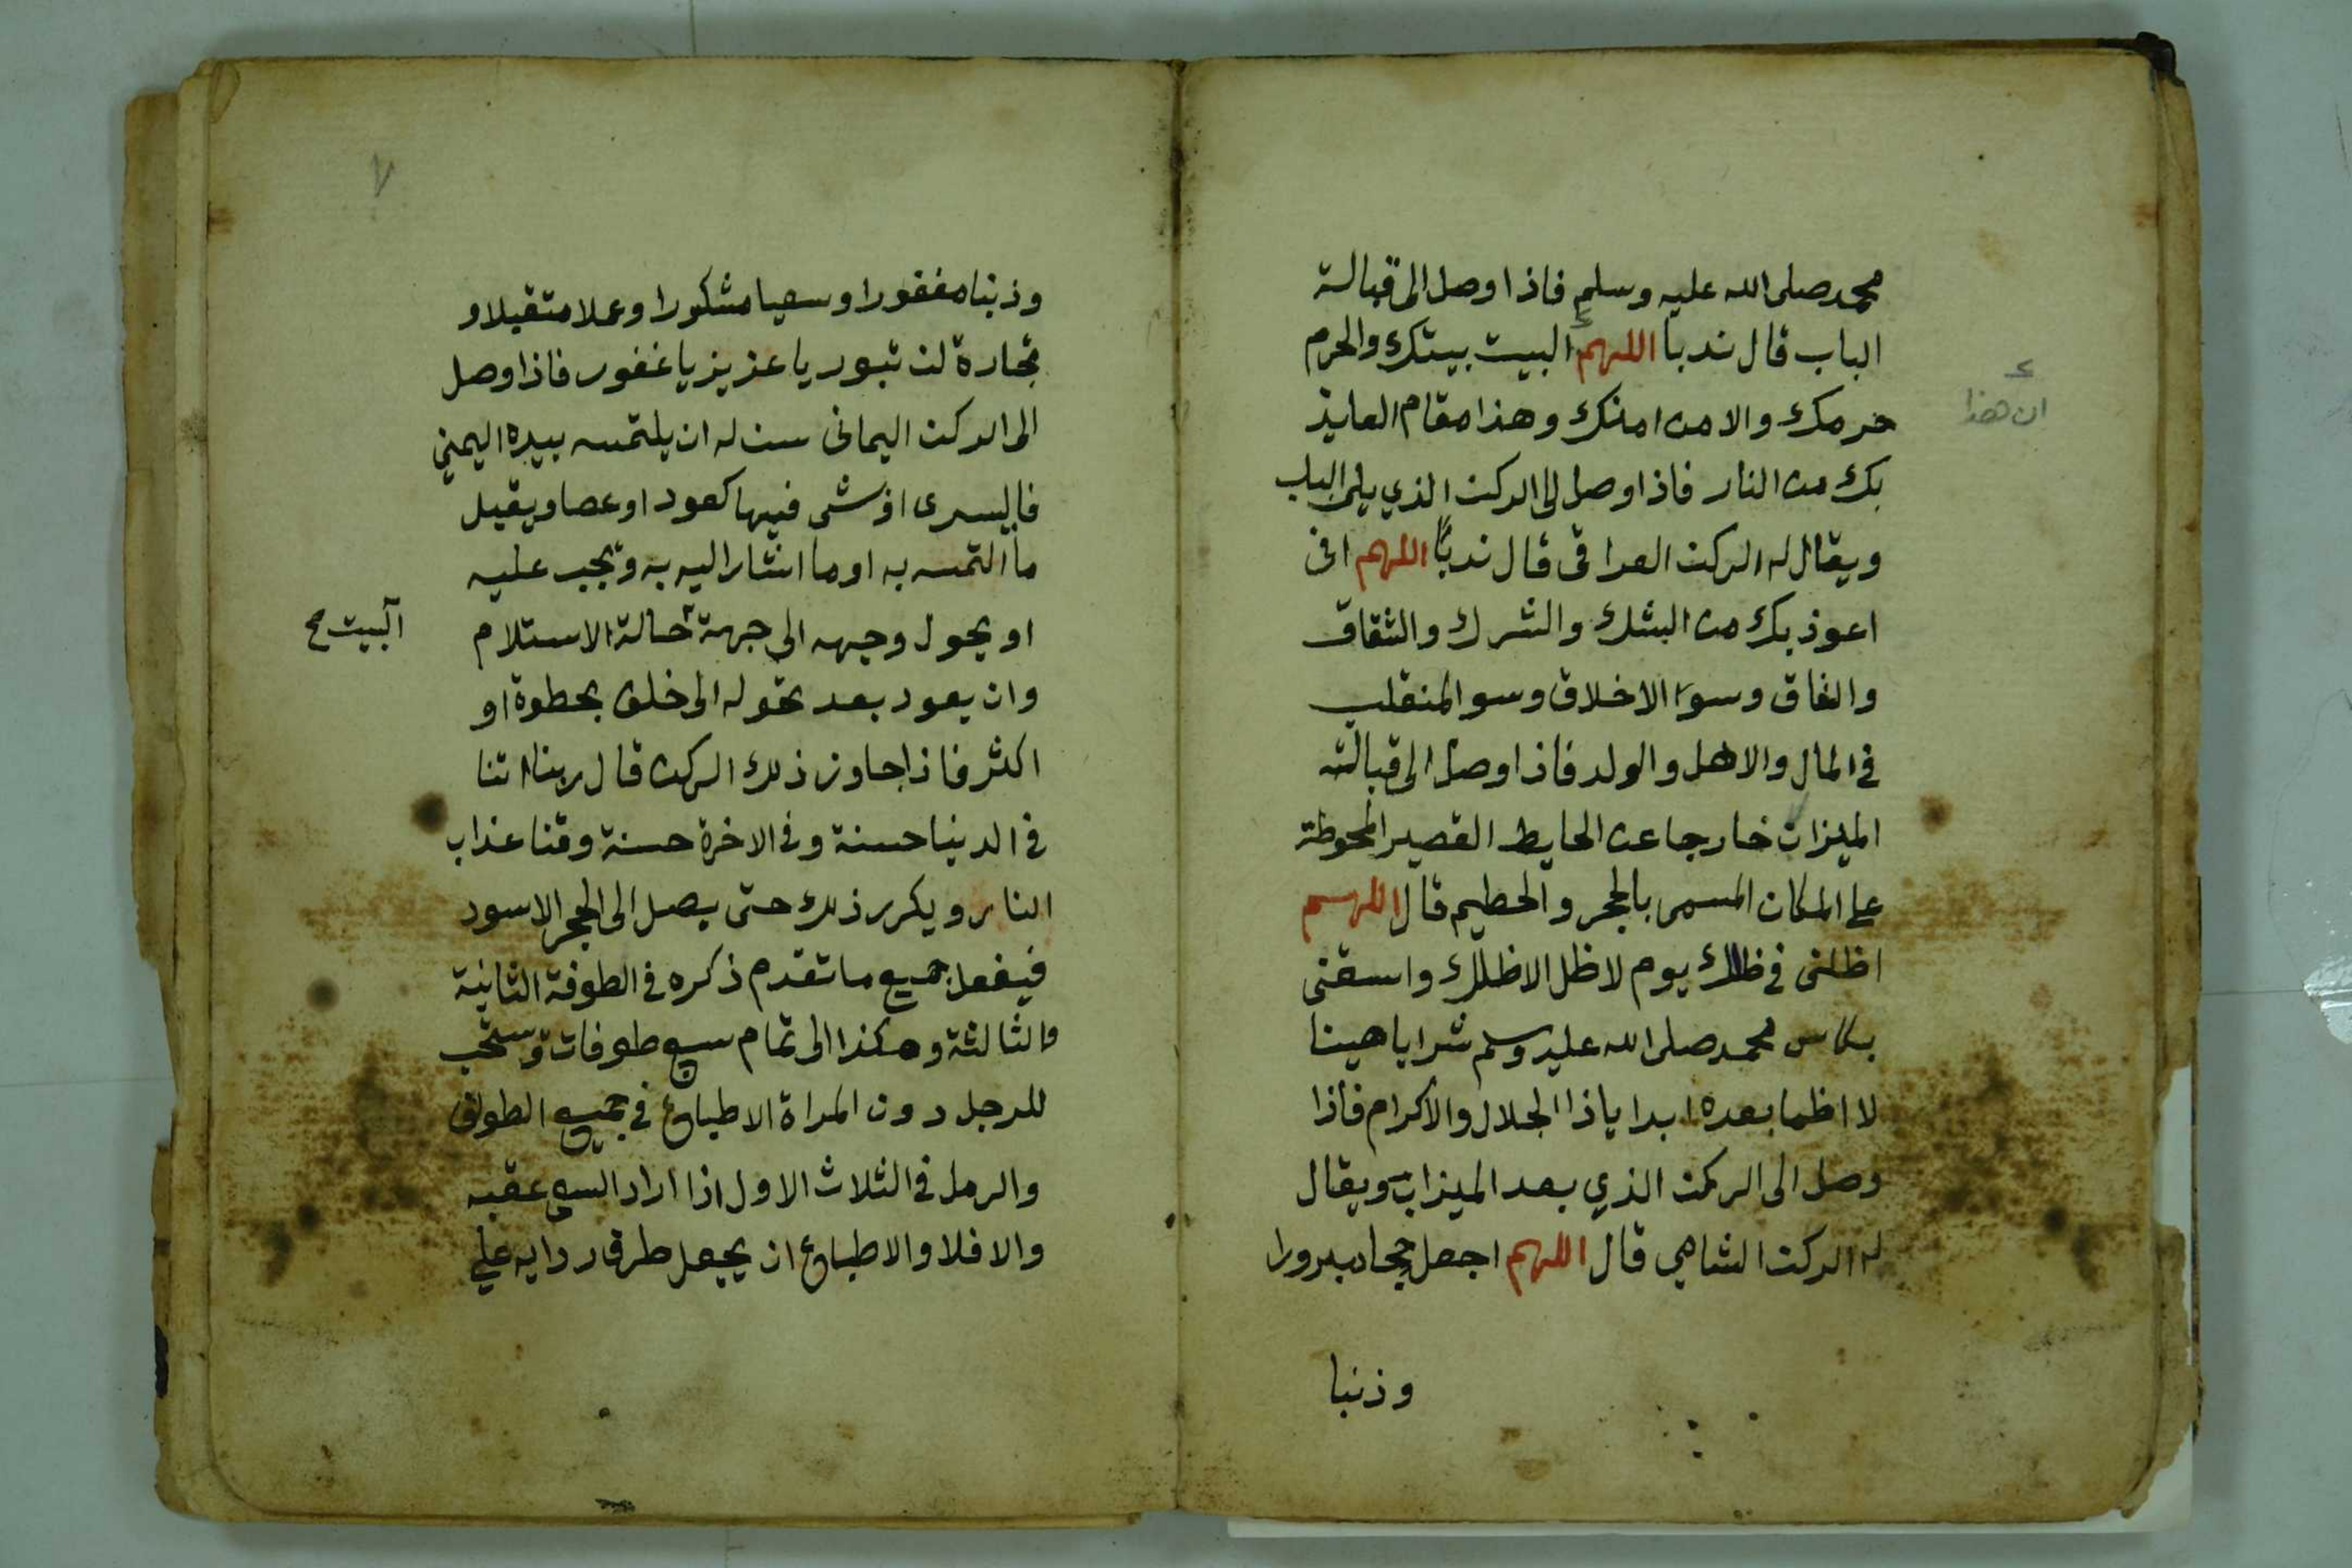 محمد صلى الله عليه وسلم فاذا وصل الى قبالة
الباب قال ندبا اللهم البيت بيتك والحرم
حرمك والامن امنك وهذا مقام العايذ
ان هذا
بك من النار فاذا وصل الى الركن الذي يلى الباب
ويقال له الركن العراقى قال ندبًا اللهم انى
اعوذ بك من الشك والشرك والشقاق
والنفاق وسوء الاخلاق وسو المنقلب
فى المال والاهل والولد فاذا وصل الى قبالة
الميزاب خارجا عن الحايط القصير المحوطة
على المكان المسمى بالحجر والحطيم قال اللهم
اظلنى فى ظلك يوم لا ظل الا ظلك واسقنى
بكاس محمد صلى الله عليه وسلم شرابا هينا
لا اظما بعده ابدا ياذا الجلال والاكرام فاذا
وصل الى الركن الذي بعد الميزاب ويقال
له الركن الشامي قال اللهم اجعل حجا مبرورا
وذنبا
٧
وذنبا مغفورا وسعيا مشكورا وعملا متقبلا و
تجارة لن تبور يا عزيز يا غفور فاذا وصل
الى الركن اليمانى سن له ان يلتمسه بيده اليمنى
فاليسرى او شى فيها كعود او عصا ويقبل
ما التمسه به او ما اشار اليه به ويجب عليه
او يحول وجهه الى جهة حالة الاستلام
البيت صح
وان يعود بعد تحوله الى خلف بخطوة او
اكثر فاذا جاوز ذلك الركن قال ربنا اتنا
فى الدنيا حسنة وفى الاخرة حسنة وقنا عذاب
النار ويكرر ذلك حتى يصل الى الحجر الاسود
فيفعل جميع ما تقدم ذكره فى الطوفة الثانية
والثالثة وهكذا الى تمام سبع طوفات ويستحب
للرجل دون المراة الاطباع فى جميع الطواف
والرمل فى الثلاث الاول اذا اراد السعي عقبه
والا فلا والاطباع ان يجعل طرفا ردايه على